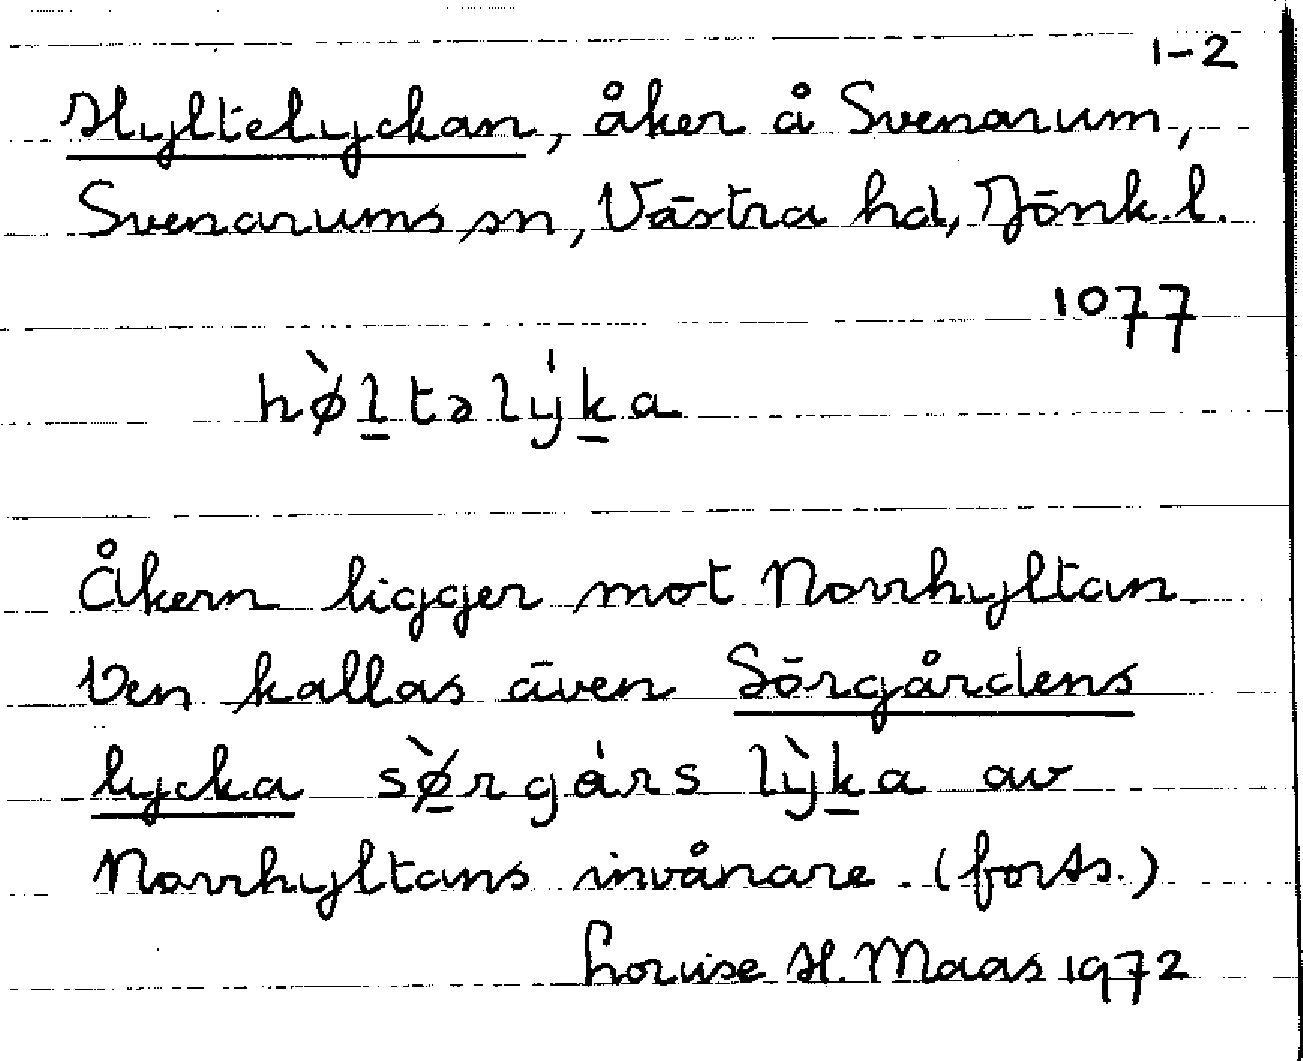 1-2
Hyltelyckan, åker å Svenarum,
Svenarums sn, Västra hd, Jönk. l.
1077
hø̀l̠təlý̍k̠a
Åkern ligger mot Norrhyltan
Den kallas även Sörgårdens
lycka sø̠̀rgárs lỳk̠a av
Norrhyltans invånare. (forts.)
Louise H. Maas 1972